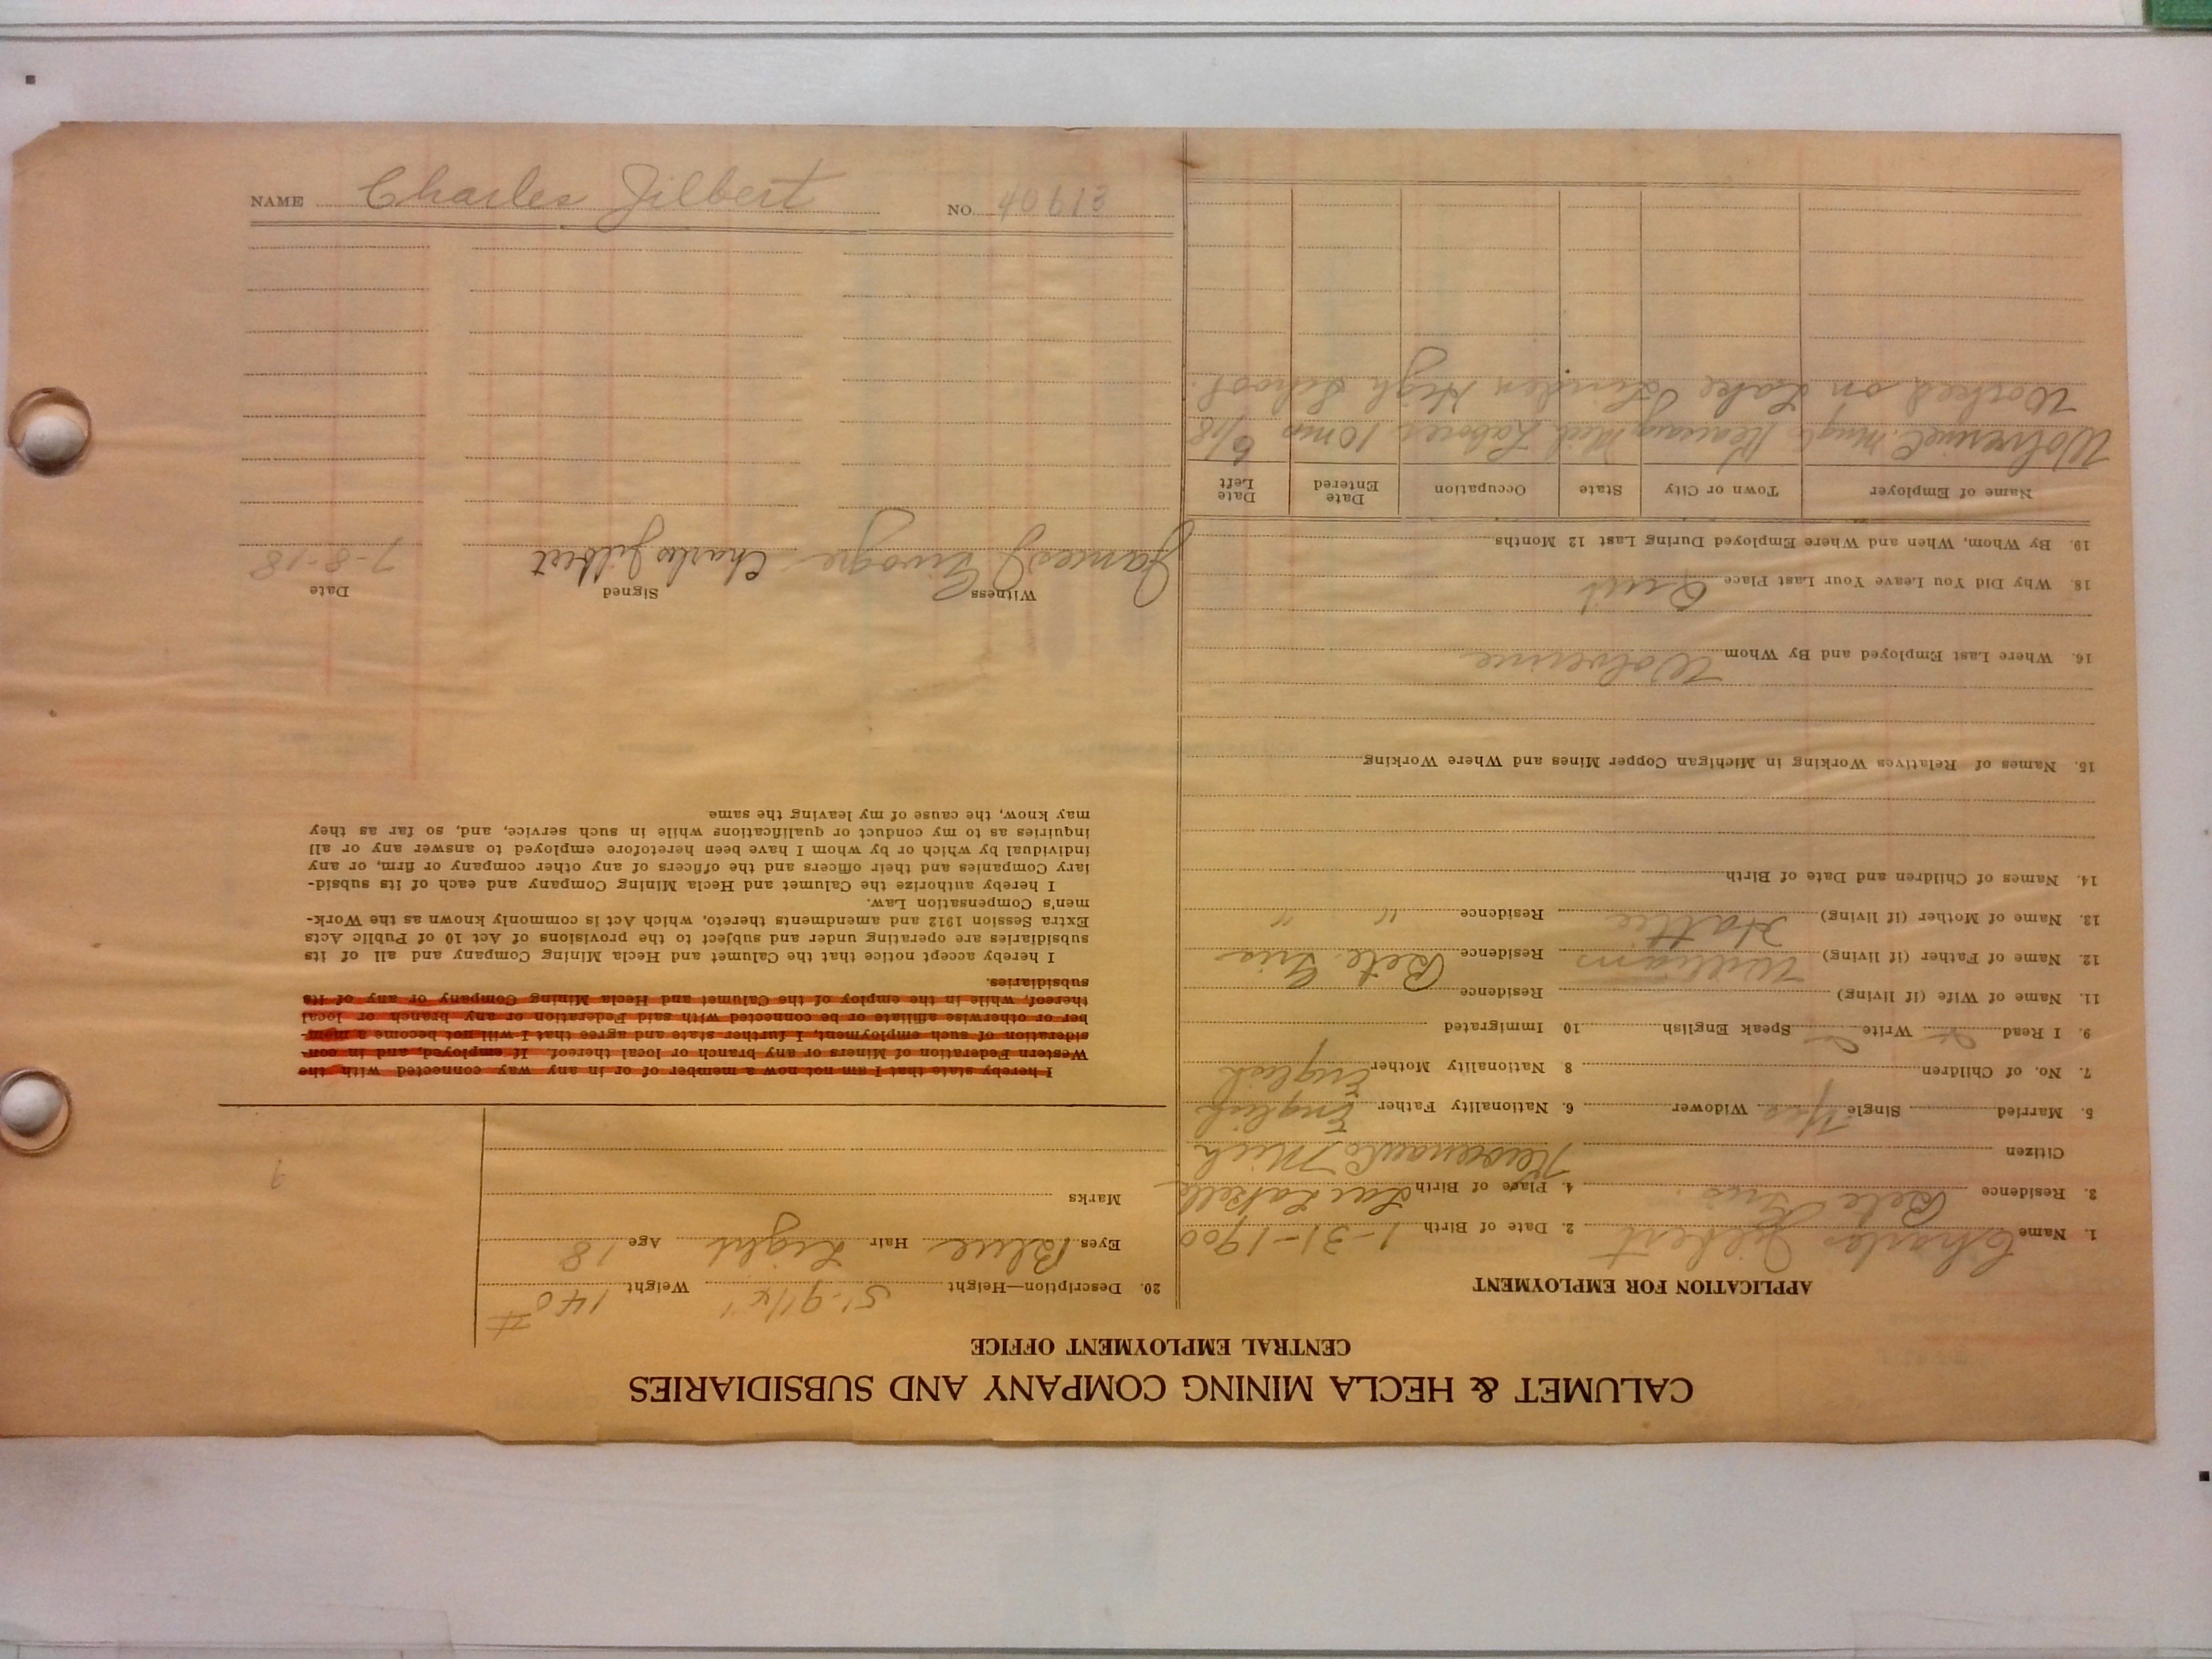 CALUMET & HECLA MINING COMPANY AND SUBSIDIARIES
CENTRAL EMPLOYMENT OFFICE
APPLICATION FOR EMPLOYMENT
1. Name Charles Jilbert 2. Date of Birth 1-31-1900
3. Residence 4. Place of Birth Lac LaBelle
Citizen Keweenaw Mich
5. Married Single Yes Widower 6. Nationality Father English
7. No. of Children 8 Nationality Mother English
9. I Read Write Speak English 10 Immigrated
11. Name of Wife (if living) Residence
12. Name of Father (if living) William Residence
13. Name of Mother (if living) Hattie Residence " "
14. Names of Children and Date of Birth
15. Names of Relatives Working in Michigan Copper Mines and Where Working
16. Where Last Employed and By Whom Wolverine
18. Why Did You Leave Your Last Place Quit
19. By Whom, When and Where Employed During Last 12 Months
Name of Employer Town or City State Occupation Date Entered Date Left
Wolverine Mich Laborer 10 mo 6/18
Worked on Lake Linden High School.
20. Description—Height 5'-9 1/4" Weight 140 #
Eyes Blue Hair Light Age 18
Marks
I hereby state that I am not now a member of or in any way connected with the
Western Federation of Miners or any branch or local thereof. If employed, and in con-
sideration of such employment, I further state and agree that I will not become a mem-
ber or otherwise affiliate or be connected with said Federation or any branch or local
thereof, while in the employ of the Calumet and Hecla Mining Company or any of its
subsidiaries.
I hereby accept notice that the Calumet and Hecla Mining Company and all of its
subsidiaries are operating under and subject to the provisions of Act 10 of Public Acts
Extra Session 1912 and amendments thereto, which Act is commonly known as the Work-
men's Compensation Law.
I hereby authorize the Calumet and Hecla Mining Company and each of its subsid-
iary Companies and their officers and the officers of any other company or firm, or any
individual by which or by whom I have been heretofore employed to answer any or all
inquiries as to my conduct or qualifications while in such service, and, so far as they
may know, the cause of my leaving the same
Witness Signed Date
James Charles Jilbert 7-8-18
NAME Charles Jilbert NO. 40613